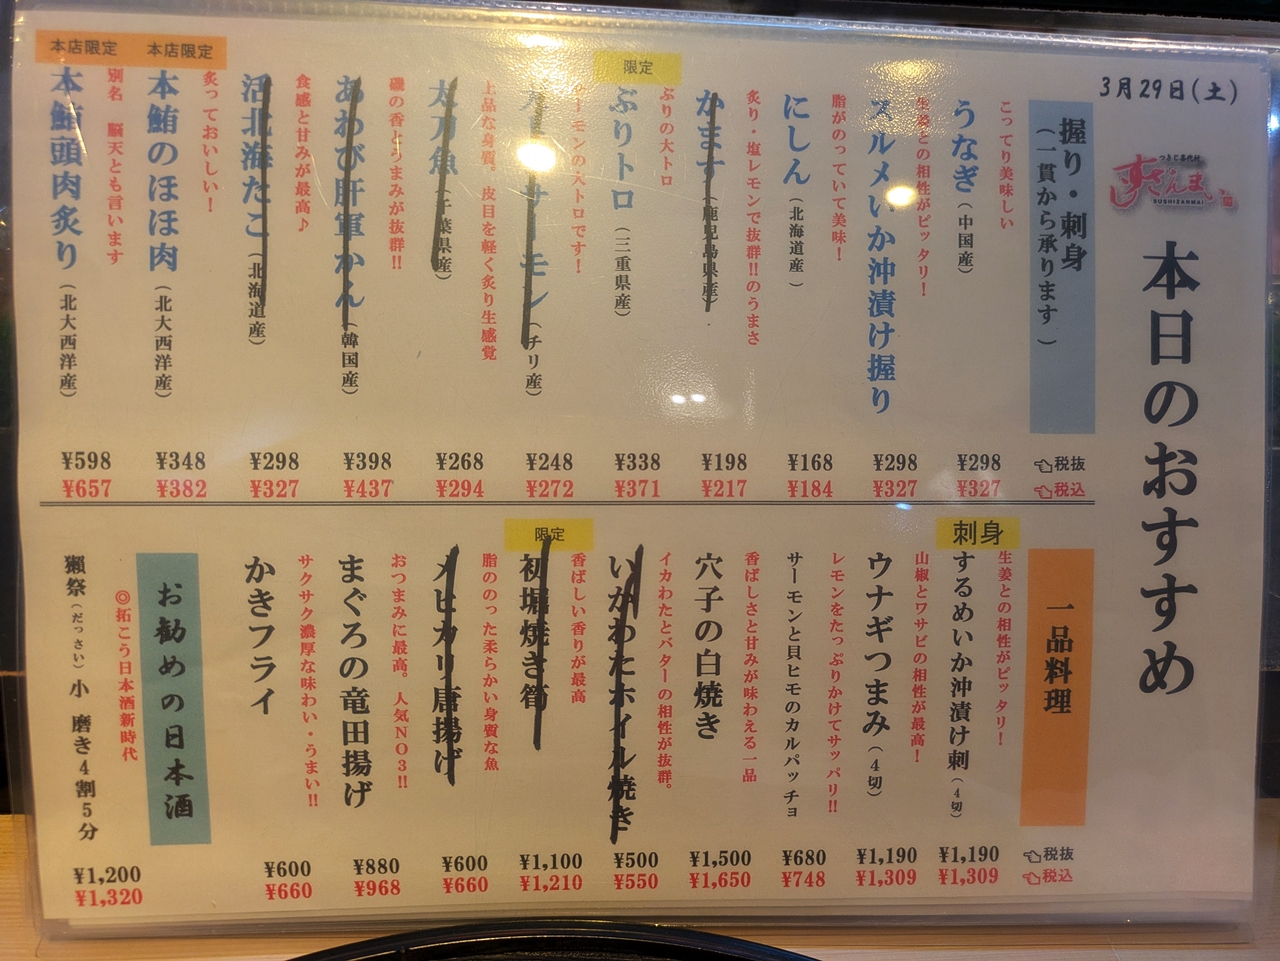 3月29日(土)
つきじ喜代村
すしざんまい
SUSHIZANMAI
本日のおすすめ
握り・刺身
(一貫から承ります)
こってり美味しい
うなぎ(中国産)
生姜との相性がピッタリ!
スルメいか沖漬け握り
脂がのっていて美味!
にしん(北海道産)
炙り・塩レモンで抜群!!のうまさ
かます(鹿児島県産)
ぶりの大トロ
限定
ぶりトロ(三重県産)
サーモンの大トロです!
サーモン(チリ産)
上品な身質。皮目を軽く炙り生感覚
太刀魚(千葉県産)
磯の香とうまみが抜群!!
あわび肝軍かん(韓国産)
食感と甘みが最高♪
活北海たこ(北海道産)
炙っておいしい!
本店限定
本鮪のほほ肉(北大西洋産)
別名 脳天とも言います
本店限定
本鮪頭肉炙り(北大西洋産)
税抜
税込
¥298
¥327
¥298
¥327
¥168
¥184
¥198
¥217
¥338
¥371
¥248
¥272
¥268
¥294
¥398
¥437
¥298
¥327
¥348
¥382
¥598
¥657
一品料理
生姜との相性がピッタリ!
刺身
するめいか沖漬け刺(4切)
山椒とワサビの相性が最高!
ウナギつまみ(4切)
レモンをたっぷりかけてサッパリ!!
サーモンと貝ヒモのカルパッチョ
香ばしさと甘みが味わえる一品
穴子の白焼き
イカわたとバターの相性が抜群。
いかわたホイル焼き
香ばしい香りが最高
限定
初堀焼き筍
脂ののった柔らかい身質な魚
メヒカリ唐揚げ
おつまみに最高。人気NO3!!
まぐろの竜田揚げ
サクサク濃厚な味わい・うまい!!
かきフライ
お勧めの日本酒
◎拓こう日本酒新時代
獺祭(だっさい)小 磨き4割5分
税抜
税込
¥1,190
¥1,309
¥1,190
¥1,309
¥680
¥748
¥1,500
¥1,650
¥500
¥550
¥1,100
¥1,210
¥600
¥660
¥880
¥968
¥600
¥660
¥1,200
¥1,320